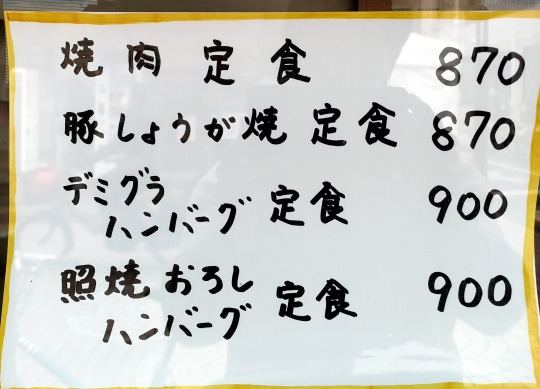 焼肉定食 870
豚しょうが焼定食 870
デミグラ
ハンバーグ 定食 900
照焼おろし
ハンバーグ 定食 900